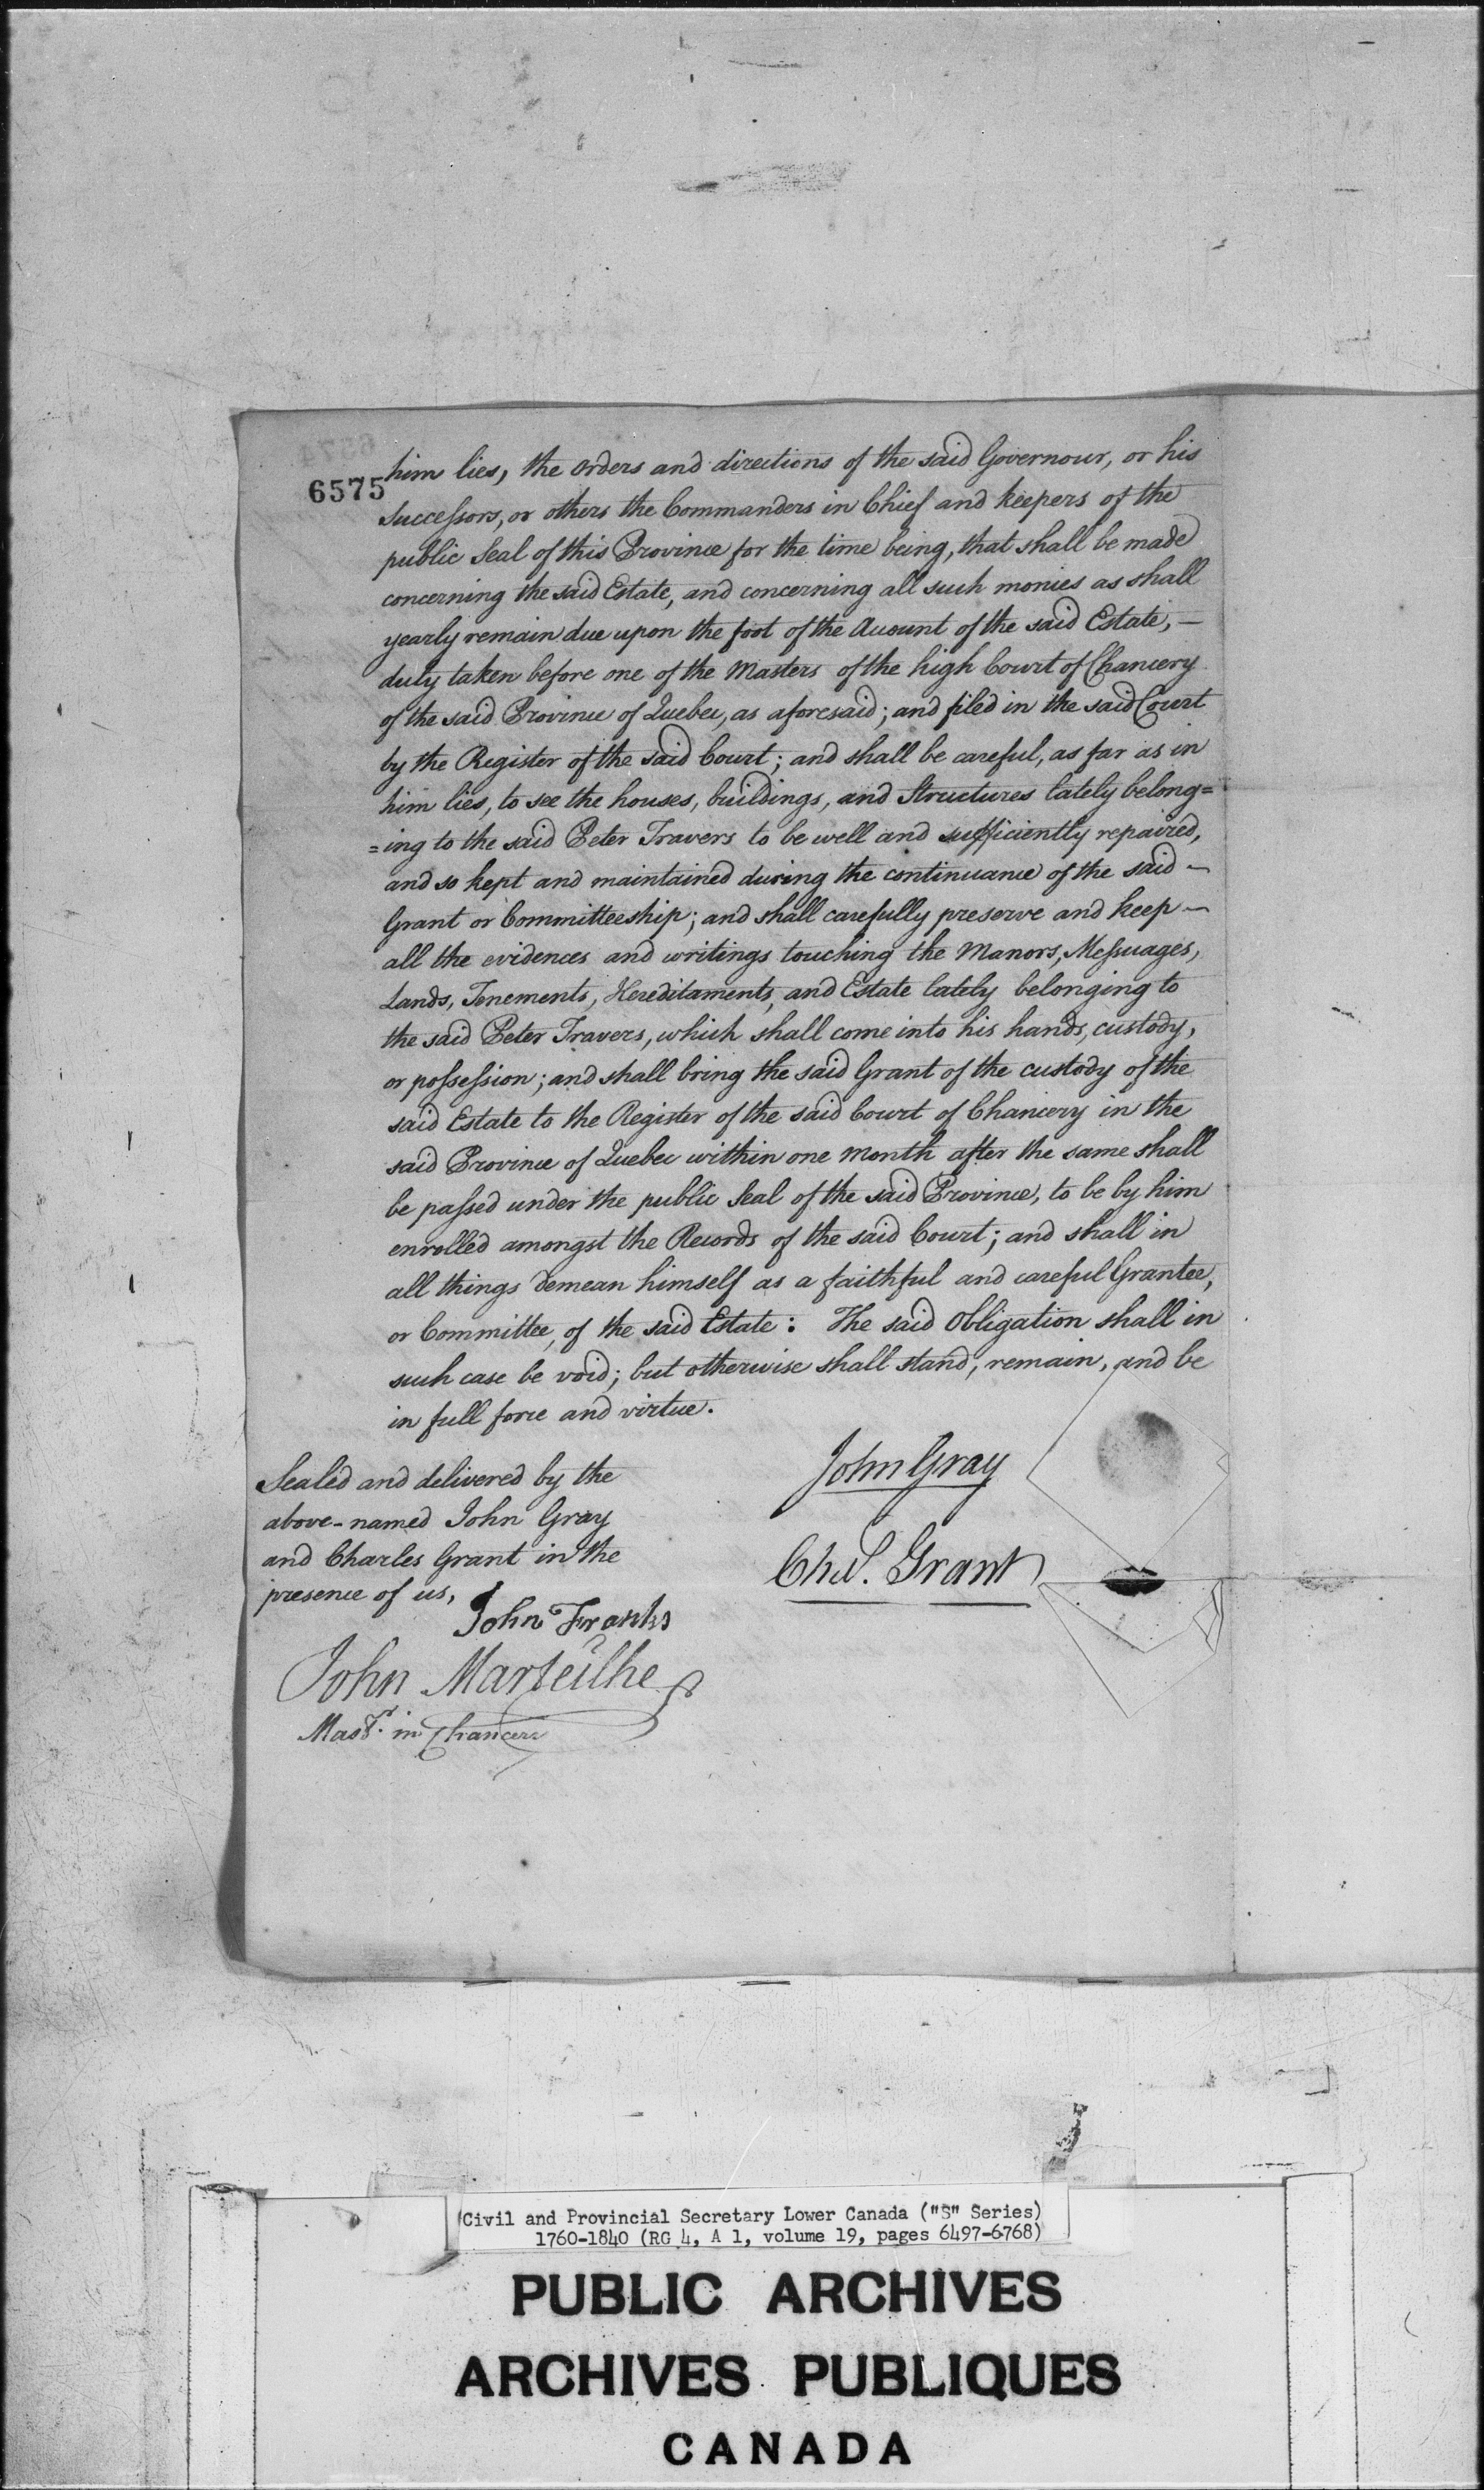 6575
him lies, the orders and directions of the said Governour, or his
Successors, or others the Commanders in Chief and keepers of the
public Seal of this Province for the time being, that shall be made
concerning the said Estate, and concerning all such monies as shall
yearly remain due upon the foot of the Account of the said Estate, —
duly taken before one of the Masters of the high Court of Chancery
of the said Province of Quebec, as aforesaid; and filed in the said Court
by the Register of the said Court; and shall be careful, as far as in
him lies, to see the houses, buildings, and Structures lately belong=
=ing to the said Peter Travers to be well and sufficiently repaired,
and so kept and maintained during the continuance of the said —
Grant or Committeeship; and shall carefully preserve and keep —
all the evidences and writings touching the Manors, Messuages,
Lands, Tenements, Hereditaments, and Estate lately belonging to
the said Peter Travers, which shall come into his hands, custody,
or possession; and shall bring the said Grant of the custody of the
said Estate to the Register of the said Court of Chancery in the
said Province of Quebec within one month after the same shall
be passed under the public Seal of the said Province, to be by him
enrolled amongst the Records of the said Court; and shall in
all things demean himself as a faithful and careful Grantee,
or Committee, of the said Estate: The said Obligation shall in
such case be void; but otherwise shall stand, remain, and be
in full force and virtue.
Sealed and delivered by the
above-named John Gray
and Charles Grant in the
presence of us,
John Franks
John Marteilhe
Mastr. in Chancery
John Gray
Chs. Grant
Civil and Provincial Secretary Lower Canada ("S" Series)
1760-1840 (RG 4, A 1, volume 19, pages 6497-6768)
PUBLIC ARCHIVES
ARCHIVES PUBLIQUES
CANADA